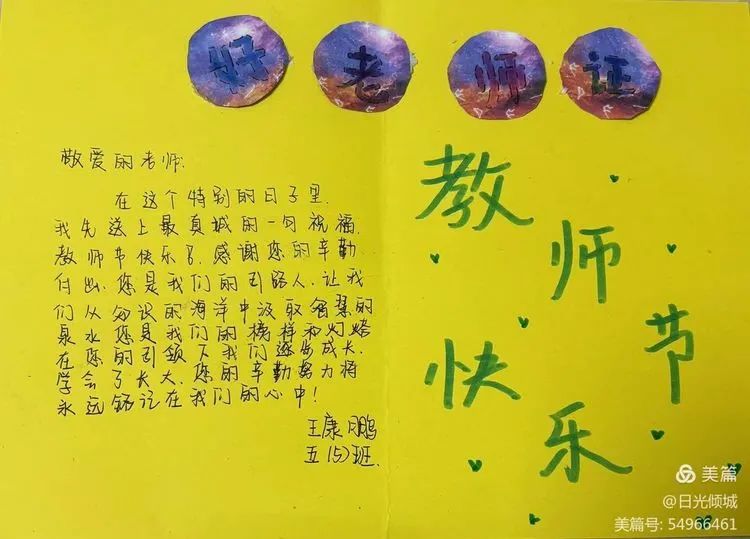 好老师证
敬爱的老师:
在这个特别的日子里
我先送上最真城的一句祝福
教师节快乐了,感谢您的辛勤
付出,您是我们的引路人,让我
们从知识的海洋中汲取智慧的
泉水您是我们的榜样和灯塔
在您的引领下我们逐步成长,
学会了长大,您的辛勤努力将
永远铭记在我们的心中!
王康鹏
五(5)班
教
师
节
快
乐
美篇
@日光倾城
美篇号: 54966461